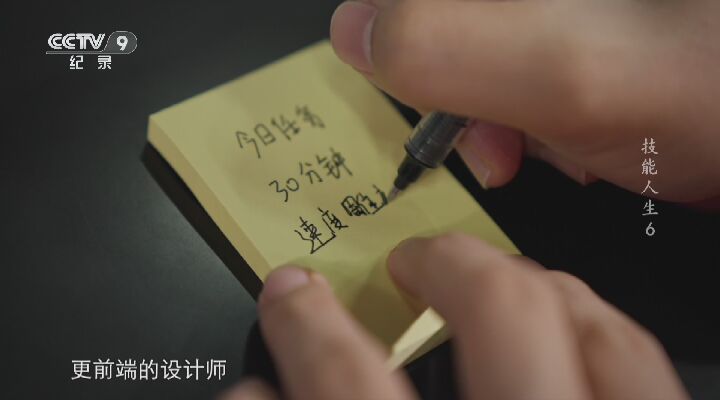 CCTV 9
纪录
今日任务
30分钟
速度雕
技能人生6
更前端的设计师